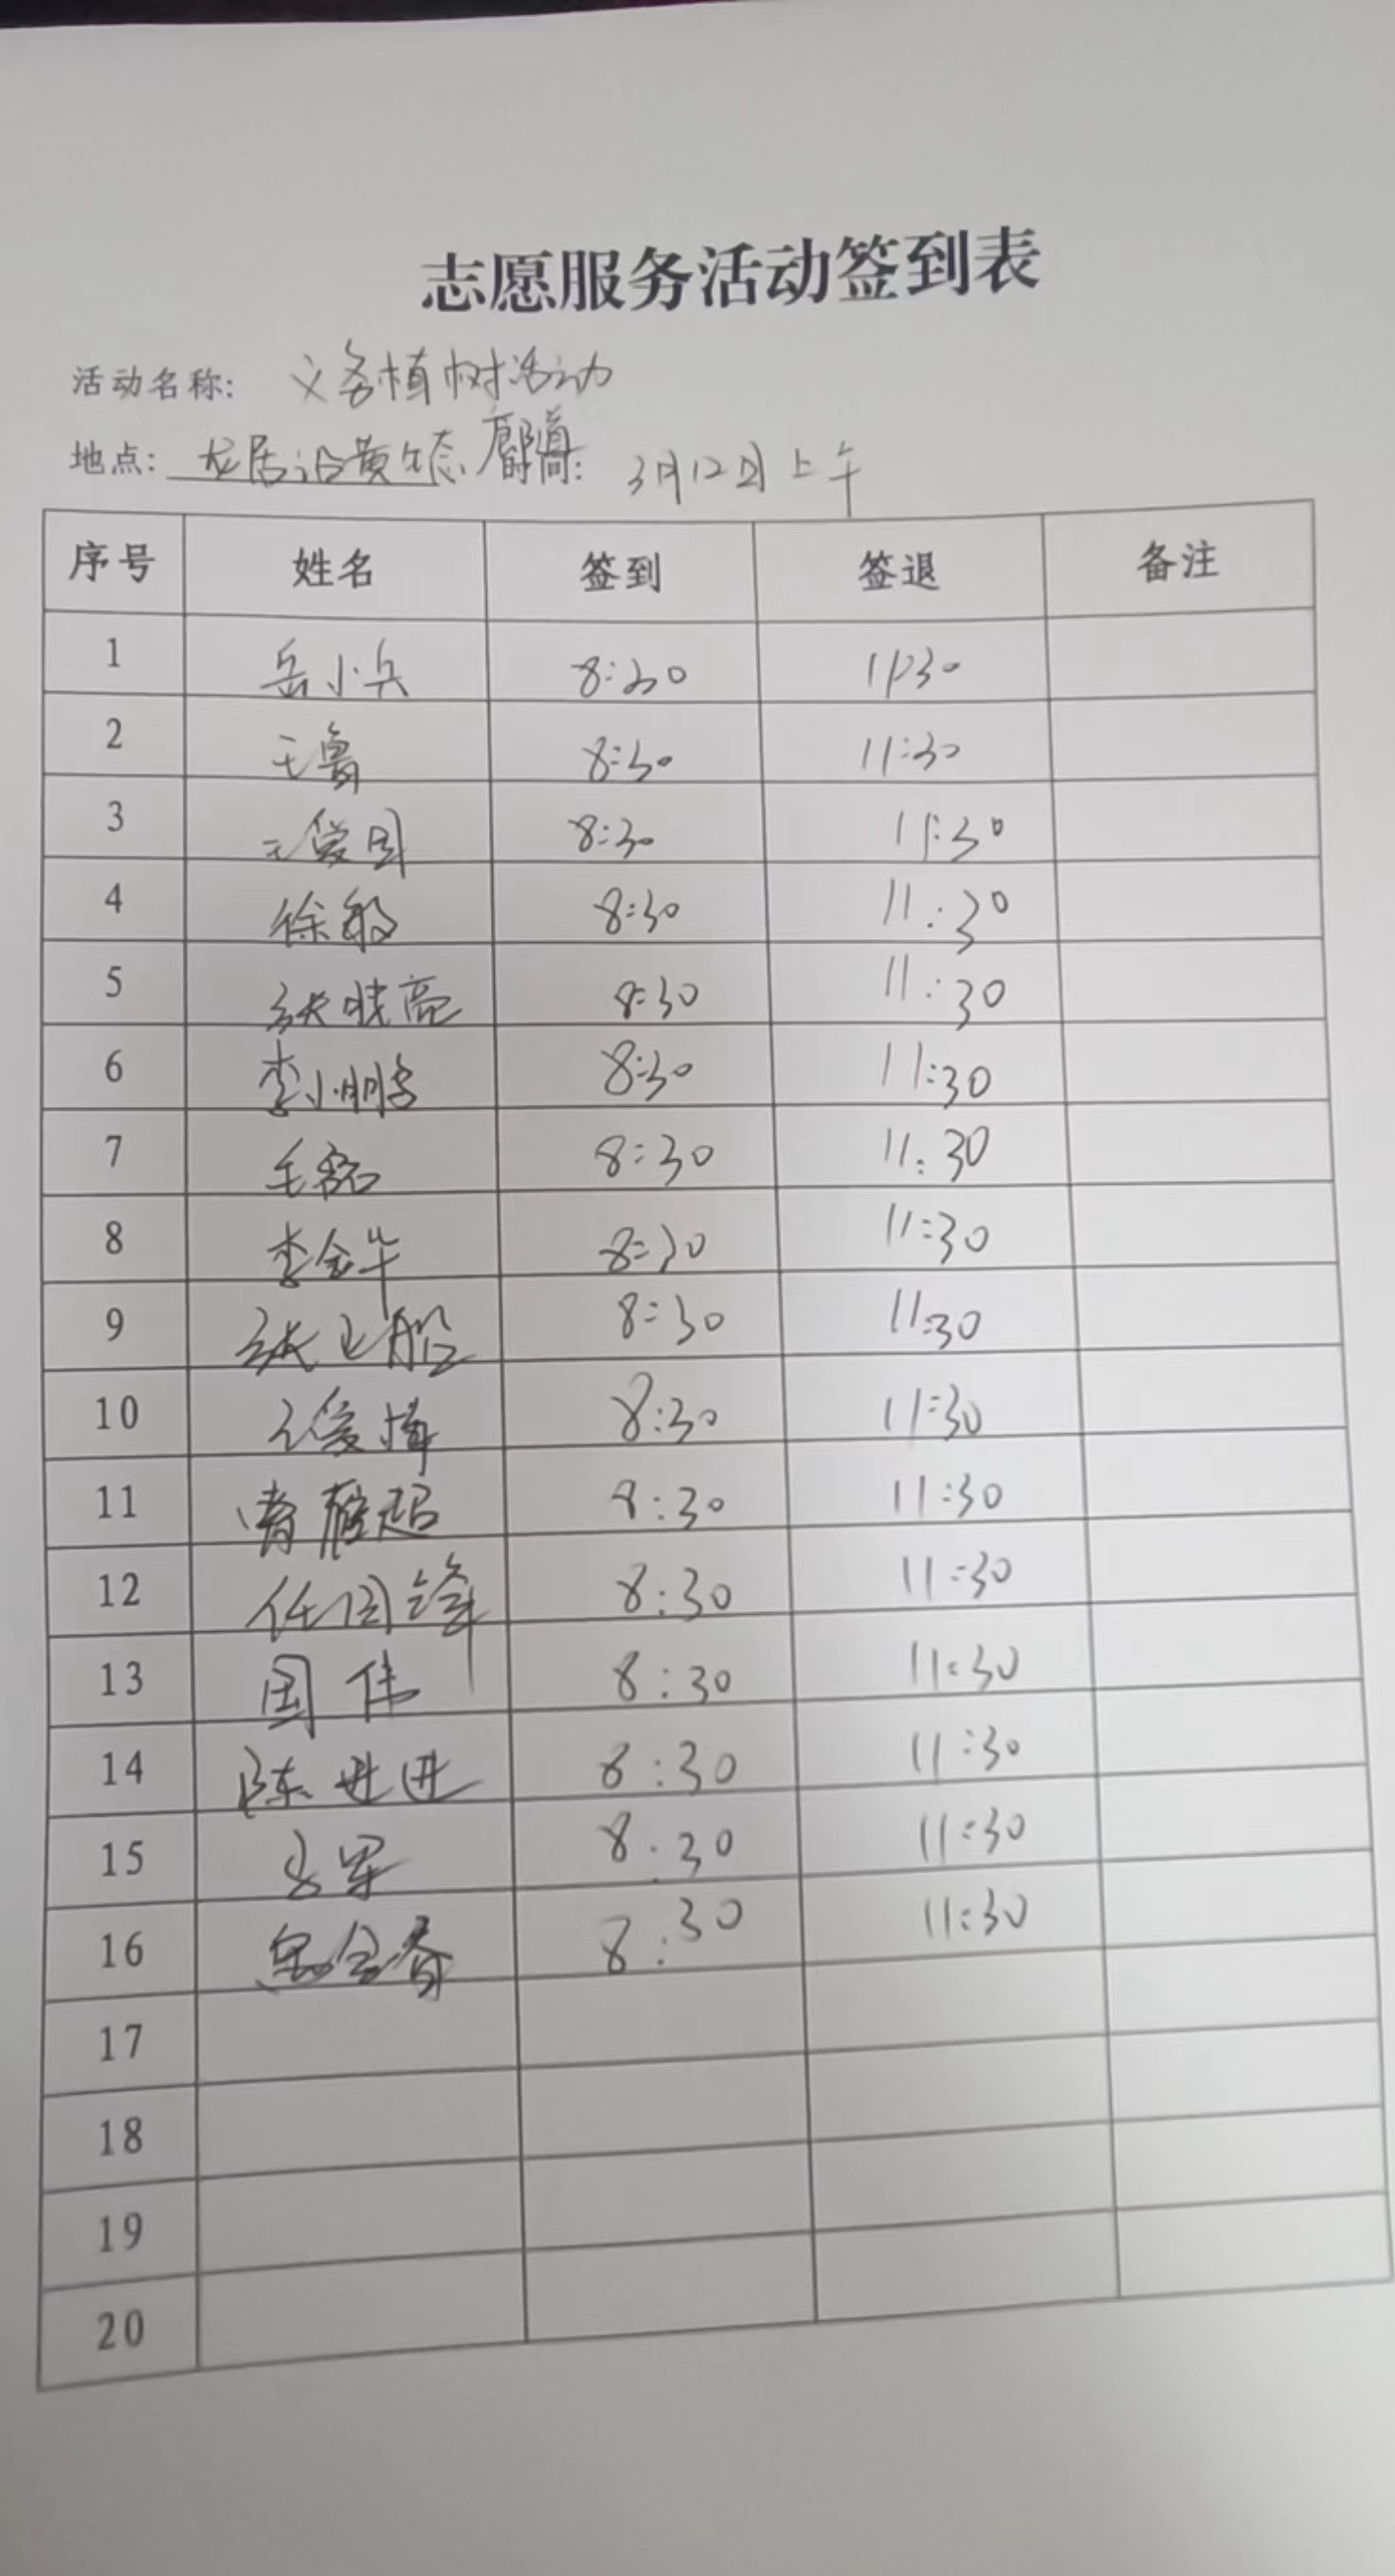 志愿服务活动签到表
活动名称: 义务植树活动
地点: 龙居沿黄生态廊道 时间: 3月12日上午
序号 姓名 签到 签退 备注
1 岳小兵 8:30 11:30
2 王鲁 8:30 11:30
3 王爱国 8:30 11:30
4 徐毅 8:30 11:30
5 张晓亮 8:30 11:30
6 李小鹏 8:30 11:30
7 毛磊 8:30 11:30
8 李金华 8:30 11:30
9 张 船 8:30 11:30
10 8:30 11:30
11 8:30 11:30
12 任国锋 8:30 11:30
13 国伟 8:30 11:30
14 陈进进 8:30 11:30
15 8:30 11:30
16 8:30 11:30
17
18
19
20